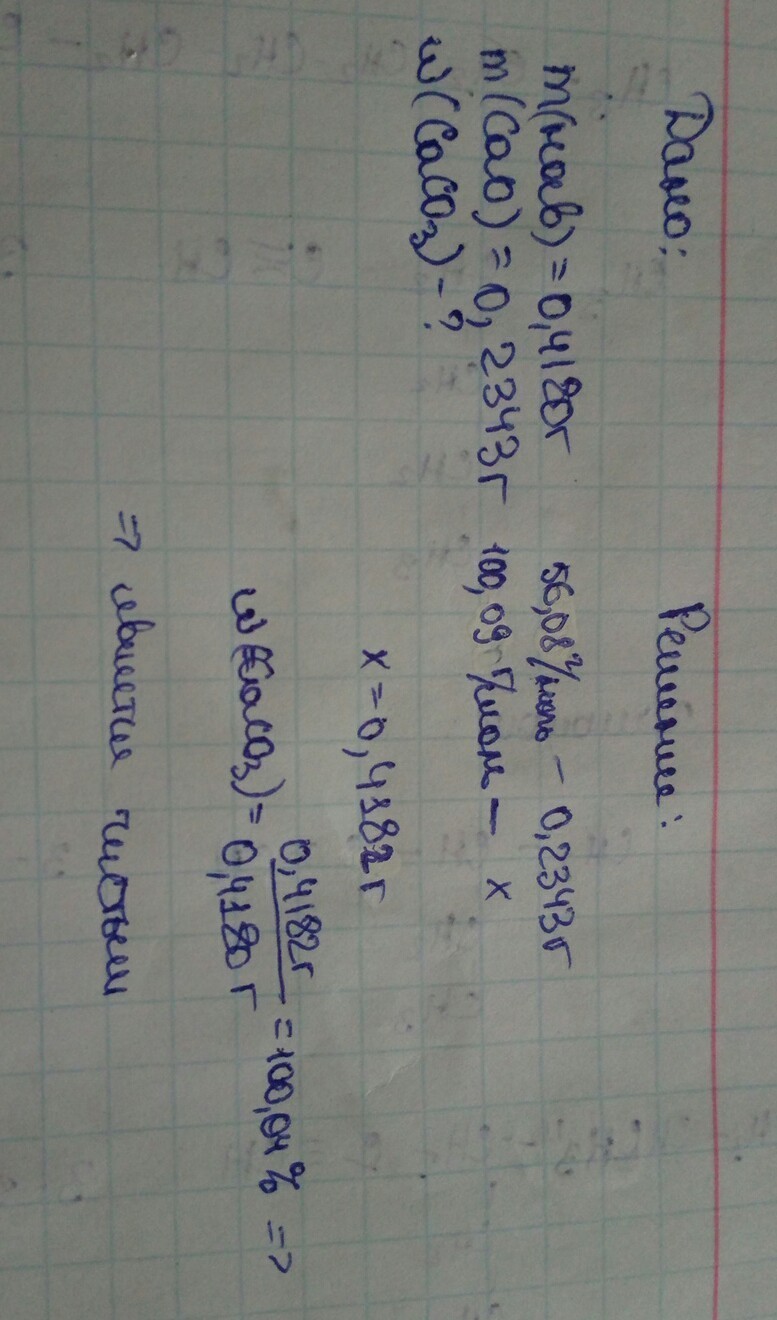 Дано:
m(нав) = 0,4180г
m(CaO) = 0,2343г
w(CaCO3) - ?
Решение:
56,08г/моль - 0,2343г
100,09г/моль - x
x = 0,4182г
w(CaCO3) = 0,4182г / 0,4180г = 100,04% =>
=> является чистым